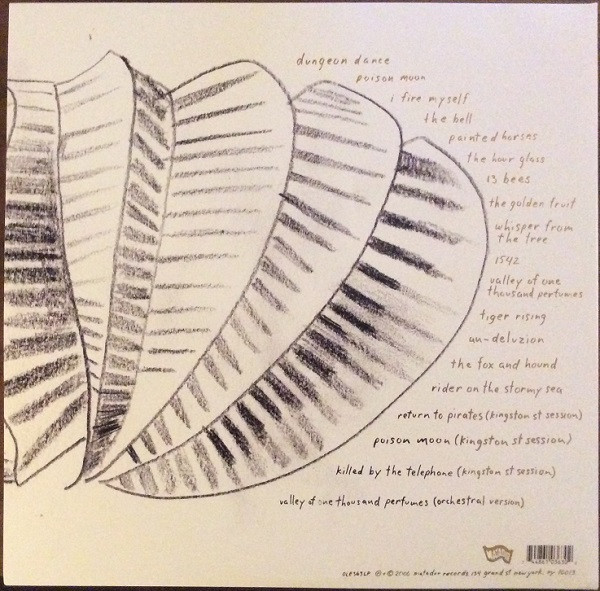 dungeon dance
poison moon
i fire myself
the bell
painted horses
the hour glass
13 bees
the golden fruit
whisper from
the tree
1542
valley of one
thousand perfumes
tiger rising
au-deluzion
the fox and hound
rider on the stormy sea
return to pirates (kingston st session)
poison moon (kingston st session)
killed by the telephone (kingston st session)
valley of one thousand perfumes (orchestral version)
matador records grand st new york, ny